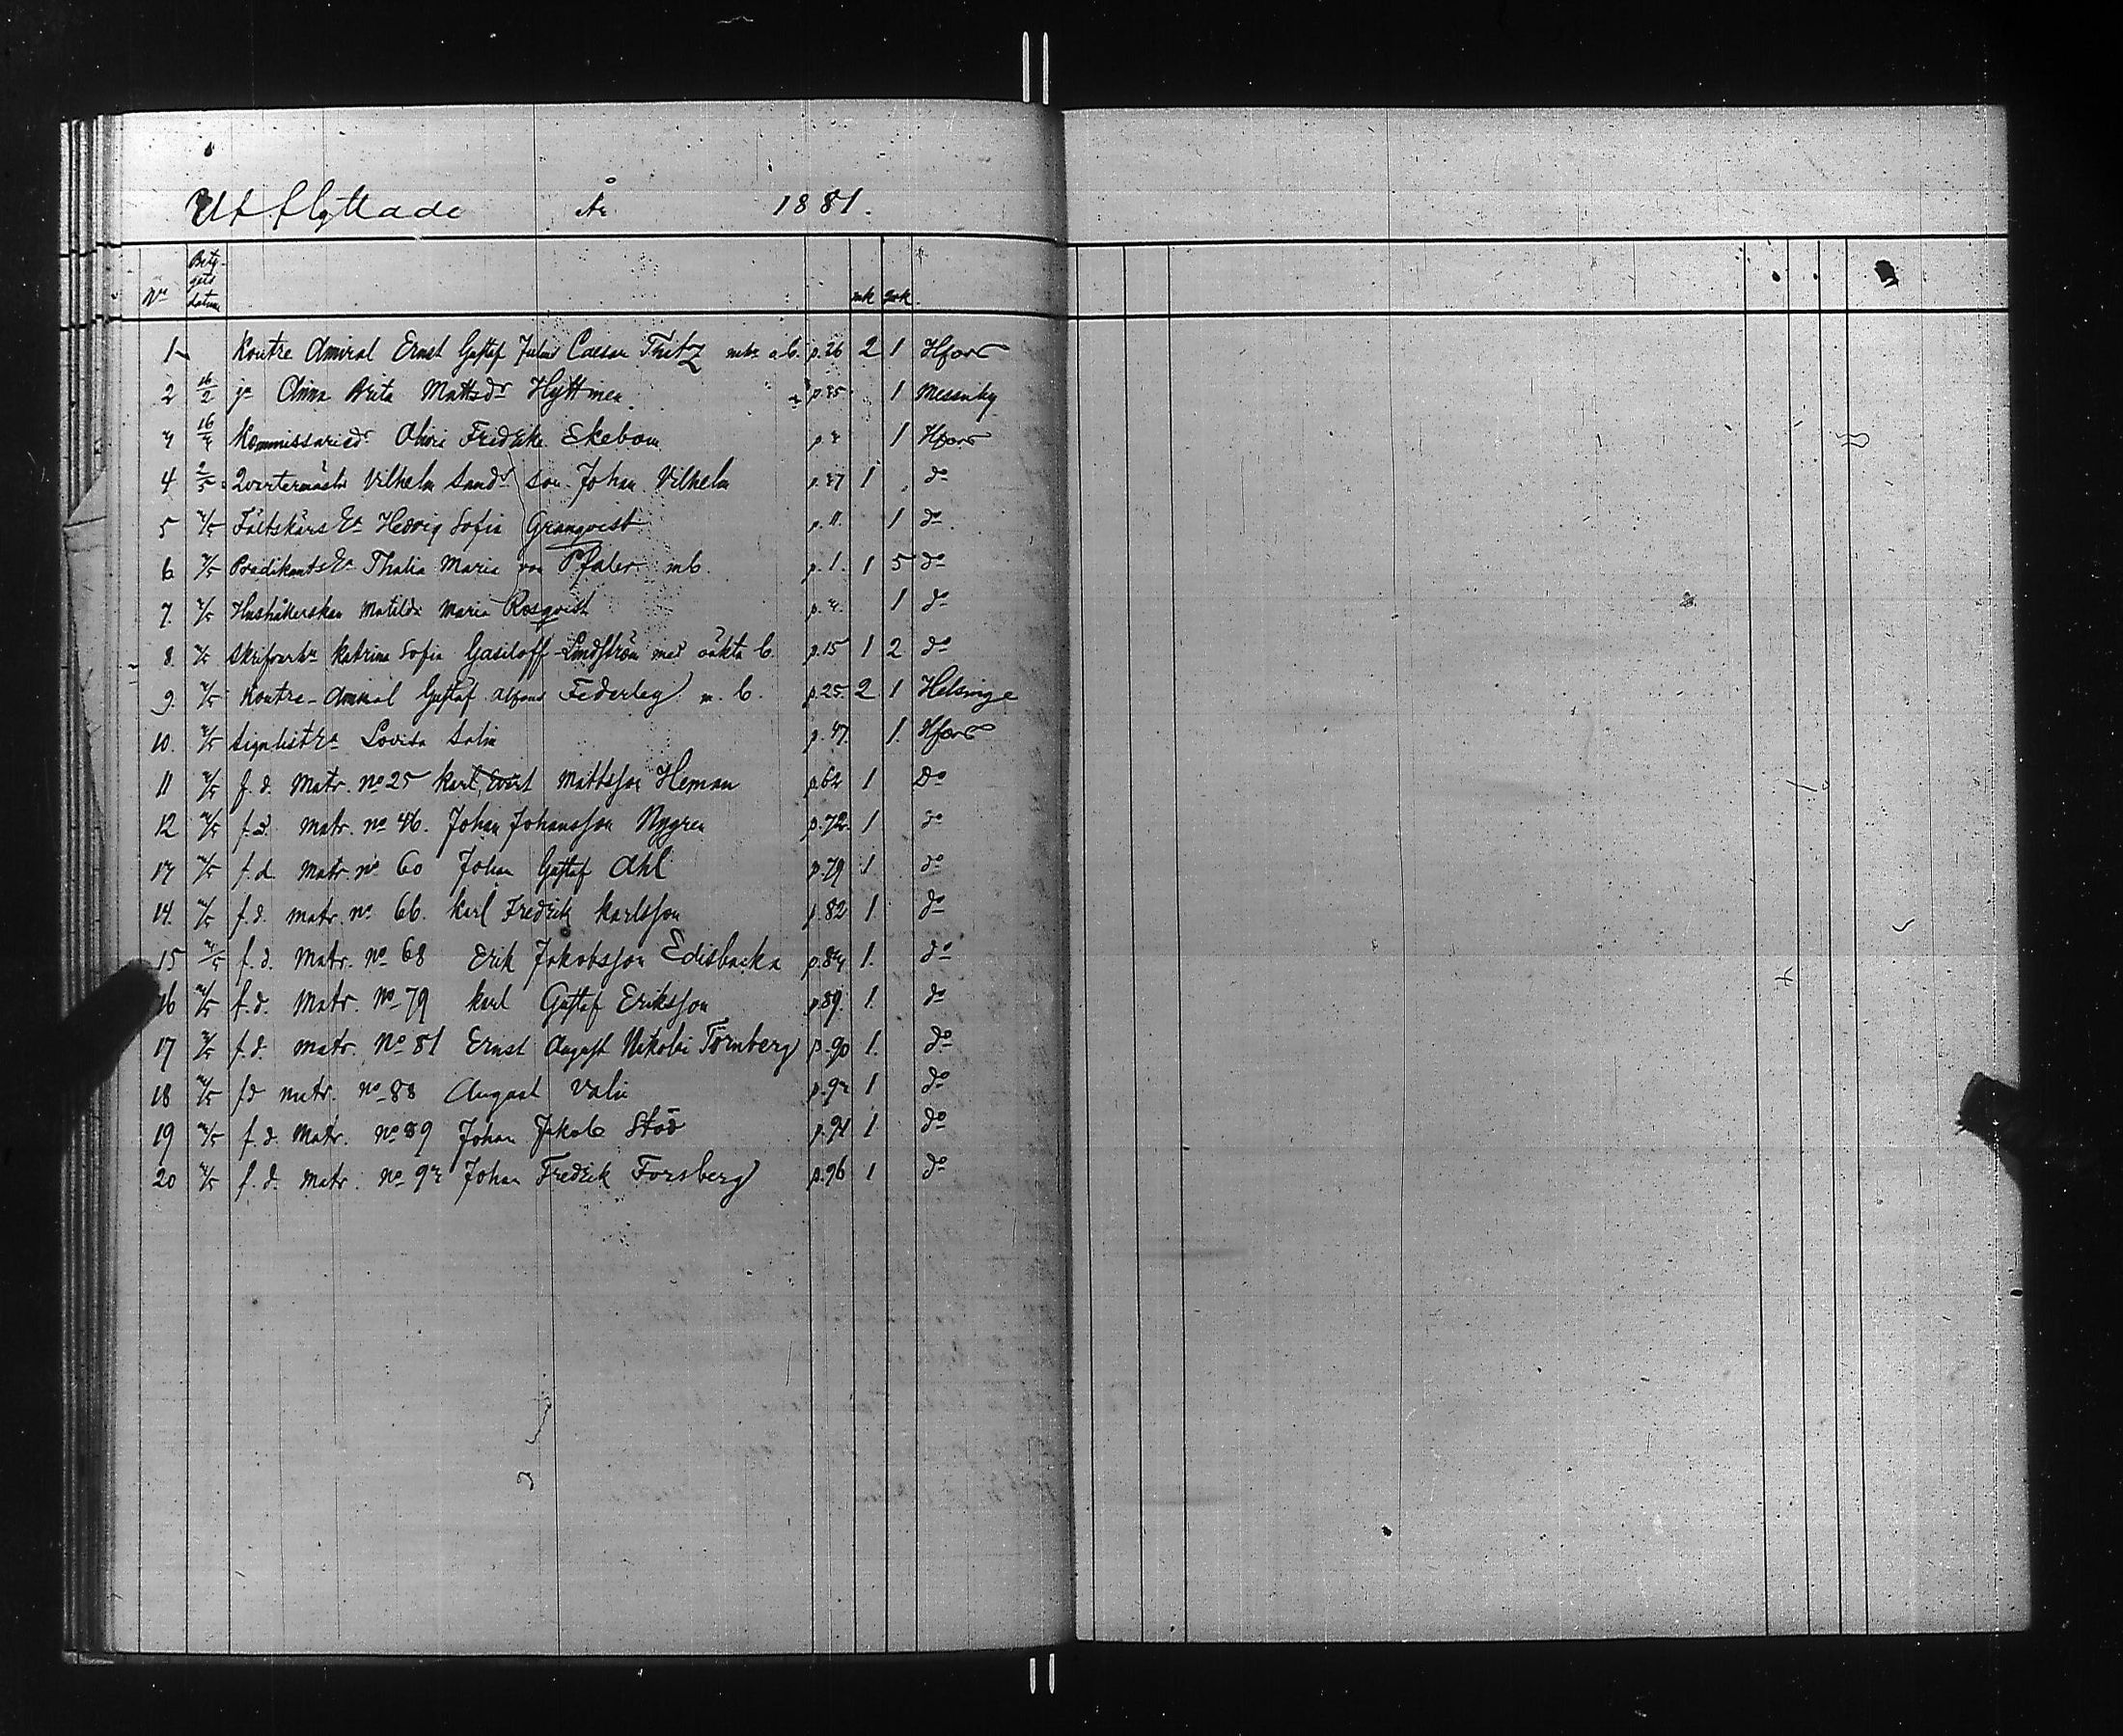 Utflyttade År 1881.
No Betygets datum mk qvk.
1 Kontre Amiral Ernst Gustaf Julius Caesar Thitz p.26 2 1 Hfors
2 16/2 Anna Brita Mattsdr Hyttinen 1 Messuby
3 16/3 Olivia Fredrika Ekebom p.3 1 Hfors
4 2/5 Vilhelm son Johan Vilhelm p.37 1 do
5 Fältskärs Ea Hedvig Sofia Granqvist p.11. 1 do.
6 Predikants Ea Thalia Maria von Pfaler m b. p.1. 1 5 do
7. Hushållerskan Matilda Maria Rosqvist p.3. 1 do
8. Katrina Sofia Gasiloff-Lindström med oäkta b. p.15 1 2 do
9. Kontre-Amiral Gustaf Alfons Federley m. b. p.25. 2 1 Helsinge
10. Signalist Ea Lovisa Salin p.47. 1. Hfors
11 f. d. Matr. no 25 Karl Evert Mattsson Heman p.62 1 Do
12 f.d. matr. no 46. Johan Johansson Nygren p.72. 1 do
13 f.d. Matr. no 60 Johan Gustaf Ahl p.79 1 do
14. f.d. matr. no 66. Karl Fredrik Karlsson p.82 1. do
15 f. d. Matr. no 68 Erik Jakobsson Edisbacka p.83 1. do
16 f.d. Matr. No 79 Karl Gustaf Eriksson p.89. 1. do
17 f.d. matr. No 81 Ernst August Nikolai Törnberg p.90 1. do
18 fd matr. no 88 August Valin p.93 1 do
19 f.d. Matr. no 89 Johan Jakob Stöd p.94 1 do
20 f. d. matr. no 93 Johan Fredrik Forsberg p.96 1 do